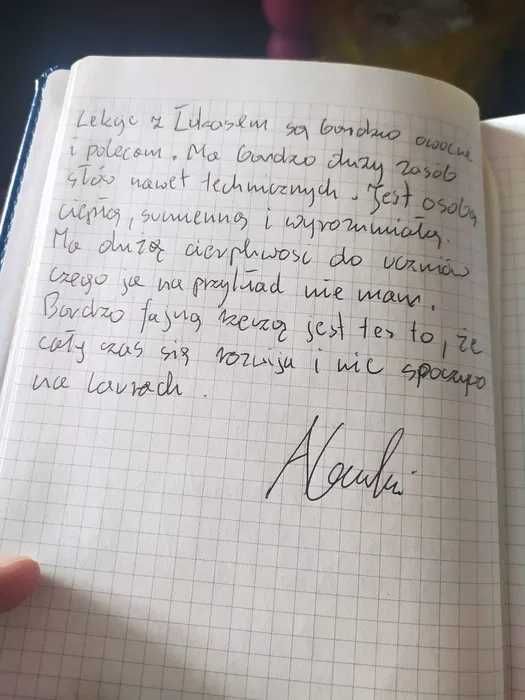 Lekcje z Łukaszem są bardzo owocne
i polecam. Ma bardzo duży zasób
słów nawet technicznych. Jest osobą
ciepłą, sumienną i wyrozumiałą.
Ma dużą cierpliwość do uczniów
czego ja na przykład nie mam.
Bardzo fajną rzeczą jest też to, że
cały czas się rozwija i nie spoczywa
na laurach.